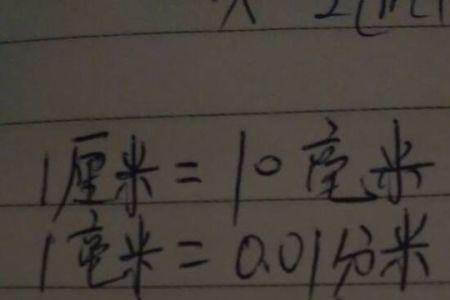 1厘米=10毫米
1毫米=0.01分米